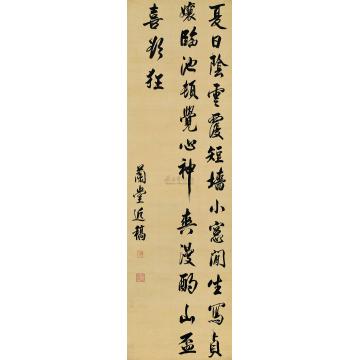 夏日陰雲覆短墻小窓閒坐寫貞
孃臨池頓覺心神爽漫酌山盃
喜欲狂
蘭堂近稿